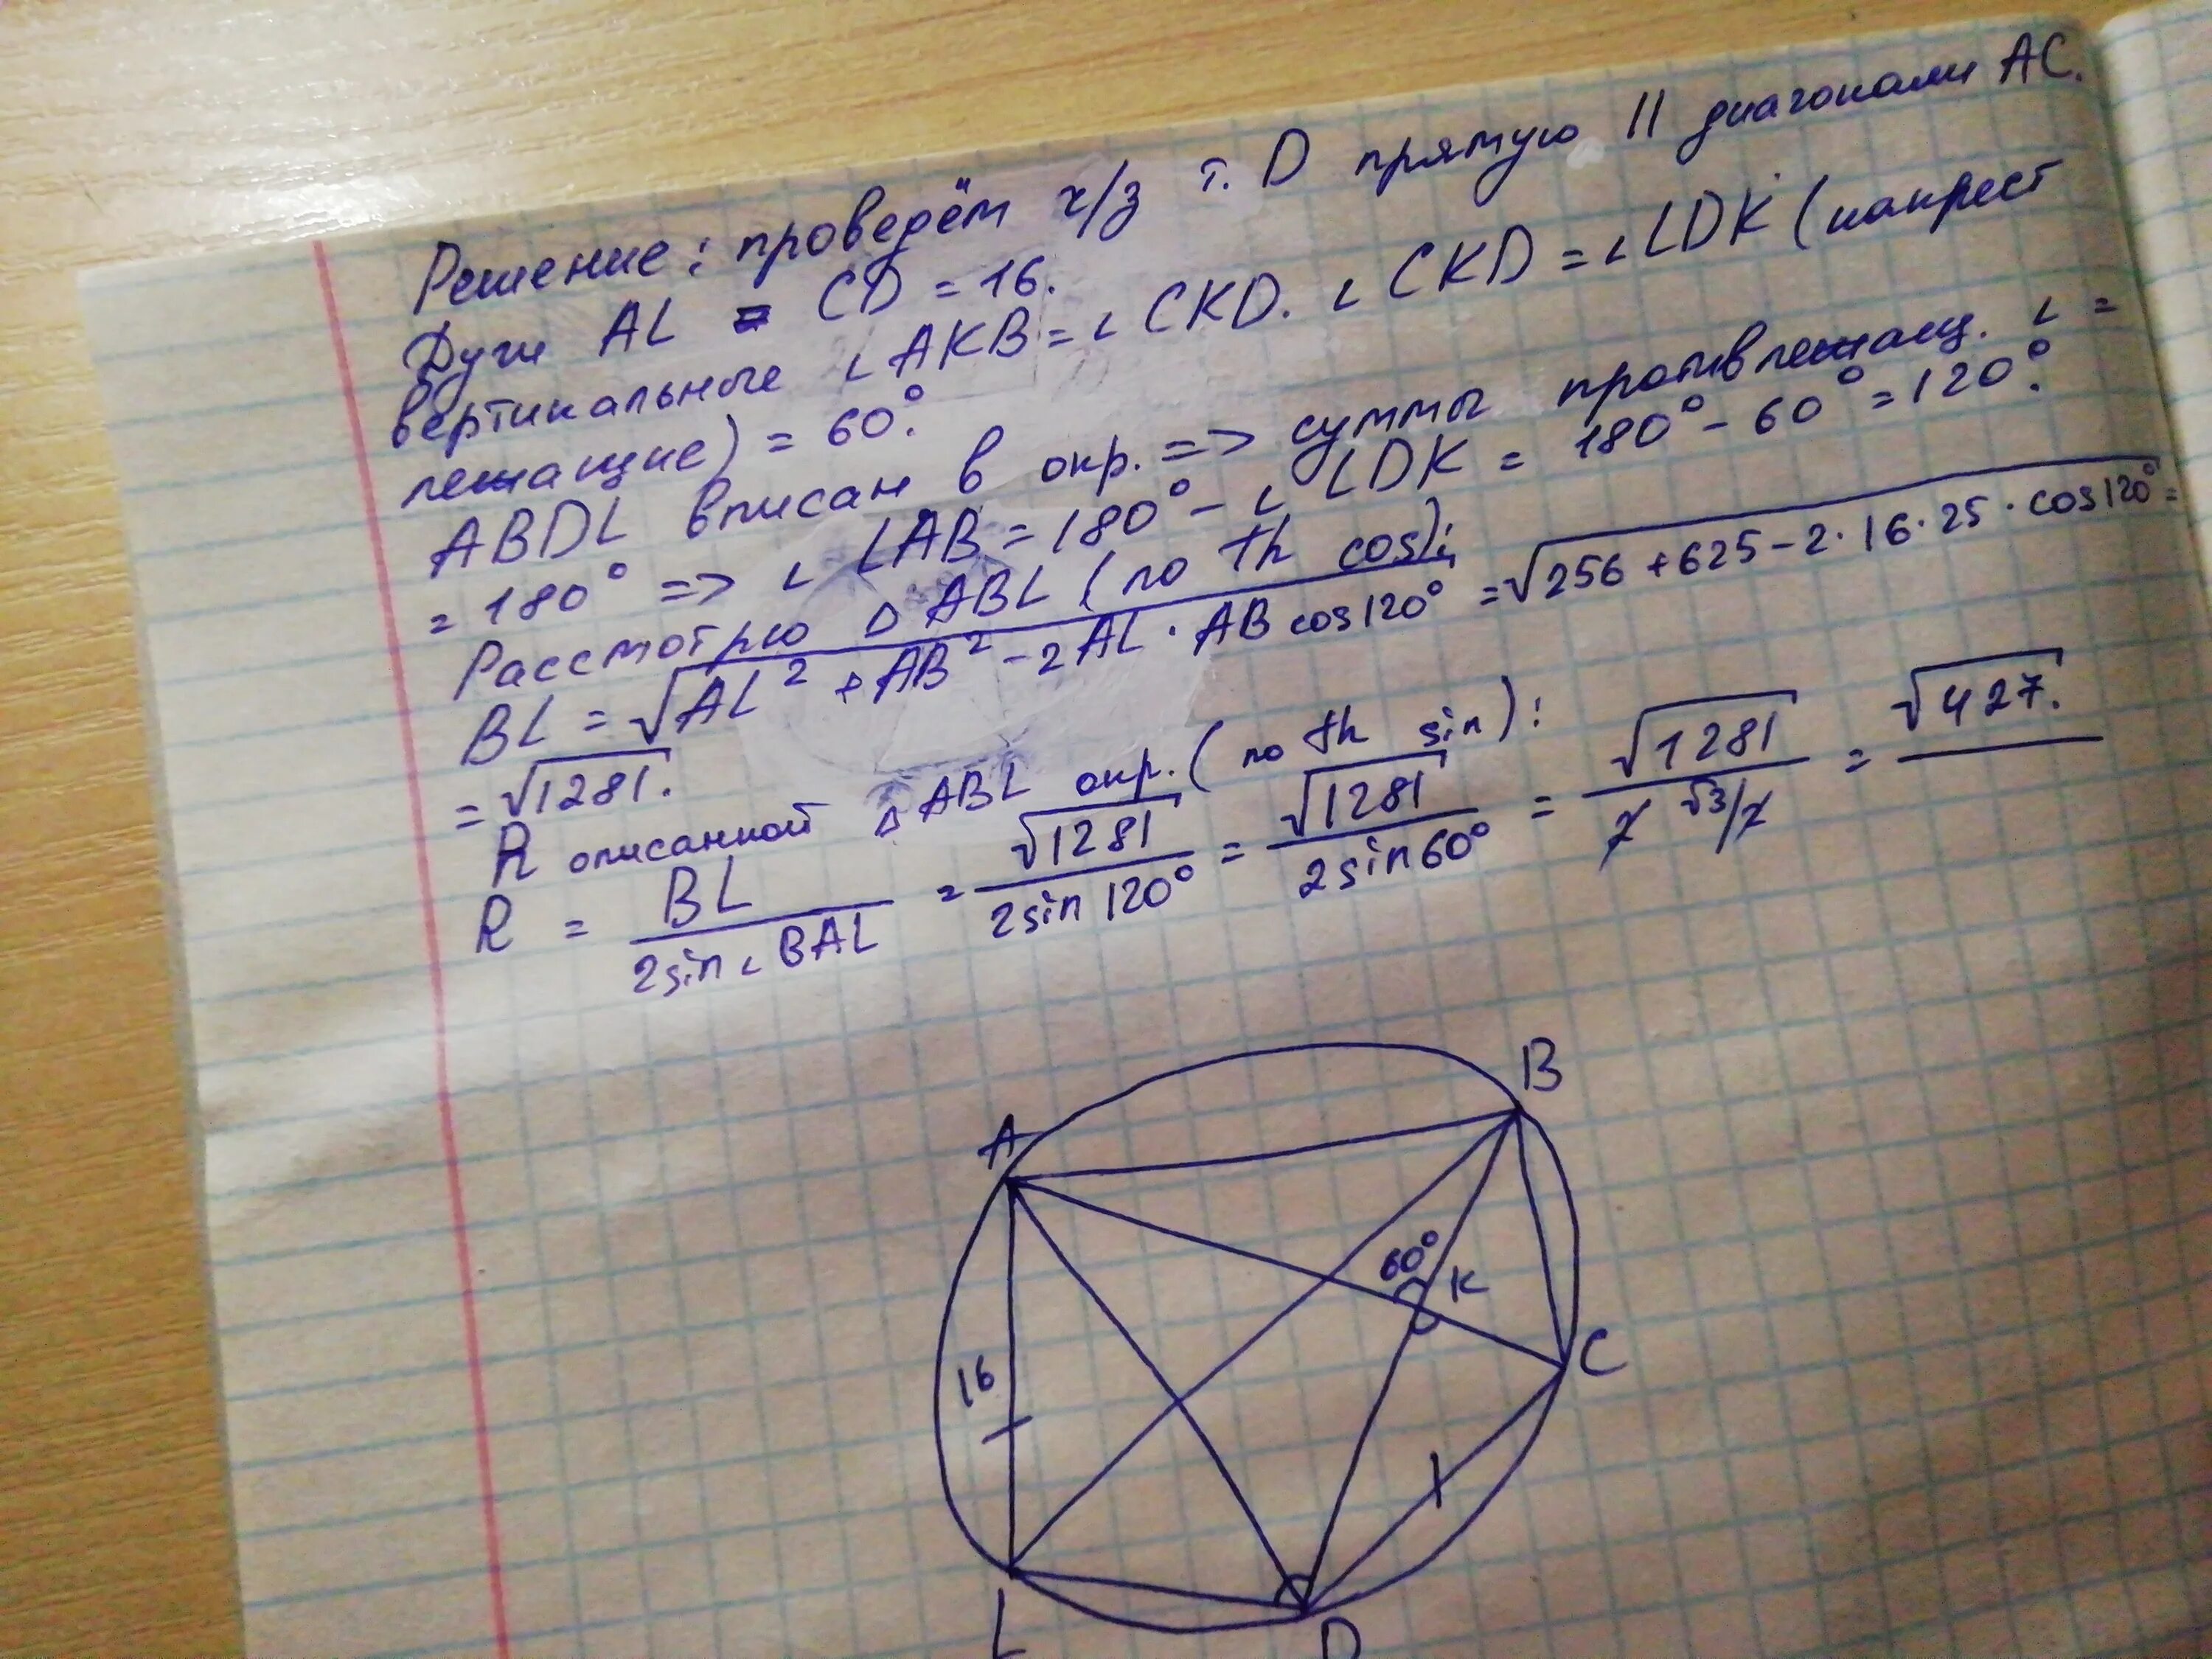 Решение: проведём ч/з т. D прямую || диагонали AC.
Дуги AL = CD = 16.
вертикальные ∠AKB = ∠CKD. ∠CKD = ∠LDK (накрест
лежащие) = 60°.
ABDL вписан в окр. => суммы противлежащ. ∠ =
= 180° => ∠LAB = 180° - ∠LDK = 180° - 60° = 120°.
Рассмотрю △ABL (по th cos):
BL = √AL² + AB² - 2AL · AB cos120° = √256 + 625 - 2·16·25·cos120° =
= √1281.
R описанной △ABL окр. (по th sin):
R = BL / 2sin∠BAL = √1281 / 2sin120° = √1281 / 2sin60° = √1281 / 2 √3/2 = √427.
A
B
60°
K
C
16
L
D